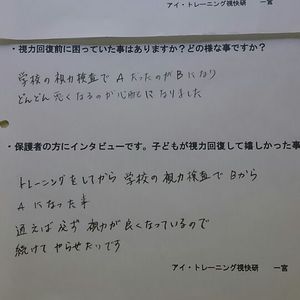 アイ・トレーニング視快研　一宮
・視力回復前に困っていた事はありますか？どの様な事ですか？
学校の視力検査で Aだったのが Bになり
どんどん悪くなるのが心配になりました
・保護者の方にインタビューです。子どもが視力回復して嬉しかった事
トレーニングをしてから 学校の視力検査で Bから
Aになった事
通えば必ず 視力が良くなっているので
続けて やらせたいです
アイ・トレーニング視快研　一宮